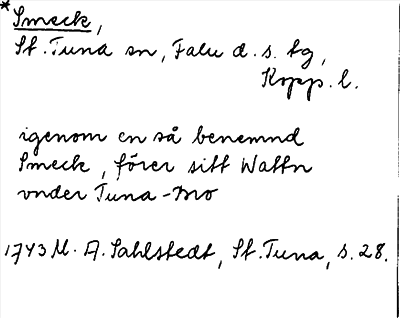 *Smeck,
St. Tuna sn, Falu d. s. tg,
Kopp. l.
igenom en så benemnd
Smeck, förer sitt Wattn
vnder Tuna-Mo
1743 M. A. Sahlstedt, St. Tuna, s. 28.